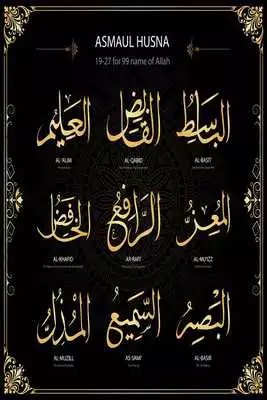 ASMAUL HUSNA
19-27 for 99 name of Allah
العليم القابض الباسط
AL-'ALIM AL-QABID AL-BASIT
الخافض الرافع المعز
AL-KHAFID AR-RAFI' AL-MU'IZZ
المذل السميع البصير
AL-MUZILL AS-SAMI' AL-BASIR